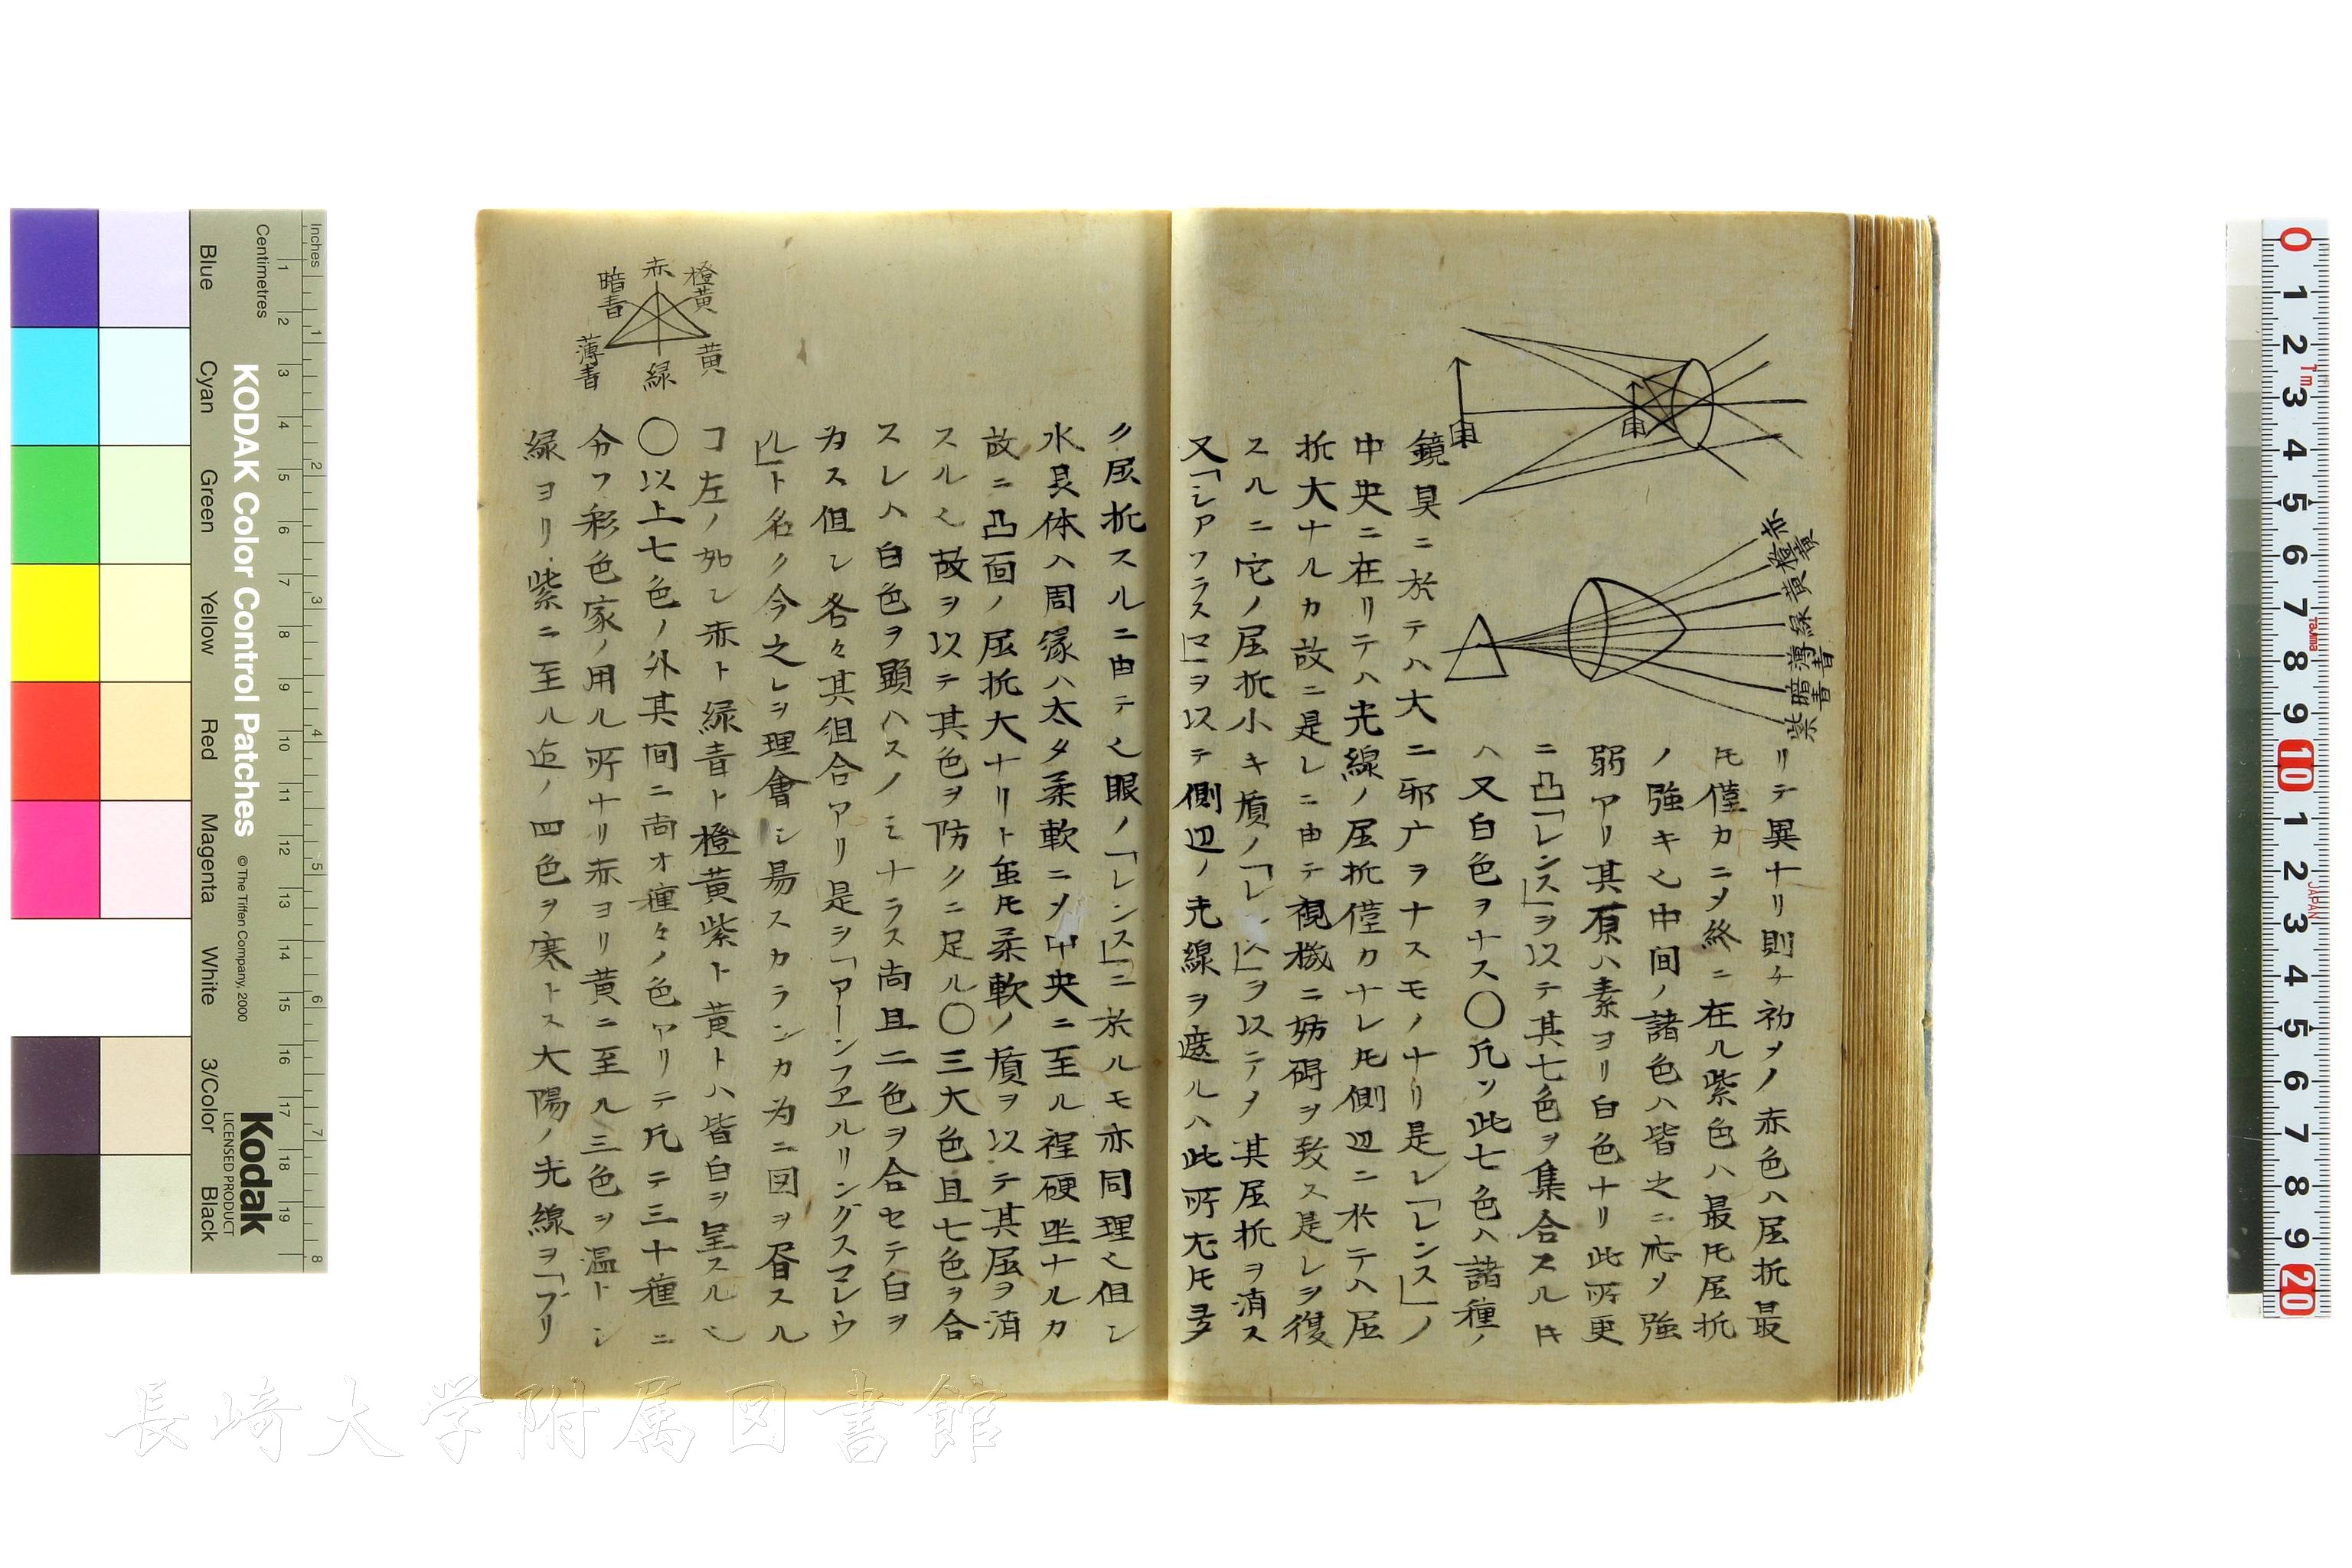 リテ異ナリ則チ初メノ赤色ハ屈折最
モ僅カニメ終ニ在ル紫色ハ最モ屈折
ノ強キ也中間ノ諸色ハ皆之ニ応メ強
弱アリ其原ハ素ヨリ白色ナリ此所更
ニ凸「レンス」ヲ以テ其七色ヲ集合スルトキ
ハ又白色ヲナス〇凡ソ此七色ハ諸種ノ
鏡具ニ於テハ大ニ邪广ヲナスモノナリ是レ「レンス」ノ
中央ニ在リテハ光線ノ屈折僅カナレトモ側辺ニ於テハ屈
折大ナルカ故ニ是レニ由テ視機ニ妨碍ヲ致ス是レヲ復
スルニ它ノ屈折小キ質ノ「レンス」ヲ以テメ其屈折ヲ消ス
又「シアフラスマ」ヲ以テ側辺ノ光線ヲ遮ルハ此所尤トモ多
ク屈折スルニ由テ也眼ノ「レンス」ニ於ルモ亦同理也但シ
水晶体ハ周縁ハ太タ柔軟ニメ中央ニ至ル程硬坚ナルカ
故ニ凸面ノ屈折大ナリト虽トモ柔軟ノ質ヲ以テ其屈ヲ消
スル也故ヲ以テ其色ヲ防クニ足ル〇三大色且七色ヲ合
スレハ白色ヲ顕ハスノミナラス尚且二色ヲ合セテ白ヲ
为ス但シ各々其徂合アリ是ヲ「アーンフヱルリングスマレウ
ル」ト名ク今之レヲ理會シ易スカランカ为ニ図ヲ眉スル
コ左ノ如シ赤ト緑青ト橙黄紫ト黄トハ皆白ヲ呈スル也
〇以上七色ノ外其間ニ尚オ種々ノ色アリテ凡テ三十種ニ
分フ彩色家ノ用ル所ナリ赤ヨリ黄ニ至ル三色ヲ温トシ
緑ヨリ紫ニ至ル迄ノ四色ヲ寒トス大陽ノ光線ヲ「プリ
赤
橙黄
黄
緑
薄青
暗青
紫
赤
橙黄
黄
緑
薄青
暗青
KODAK Color Control Patches
© The Tiffen Company, 2000
Kodak
LICENSED PRODUCT
Inches
Centimetres
Blue
Cyan
Green
Yellow
Red
Magenta
White
3/Color
Black
1 2 3 4 5 6 7 8 9 10 11 12 13 14 15 16 17 18 19
1 2 3 4 5 6 7 8
0 1 2 3 4 5 6 7 8 9 10 1 2 3 4 5 6 7 8 9 20
1m
Tajima
JAPAN
長崎大学附属図書館